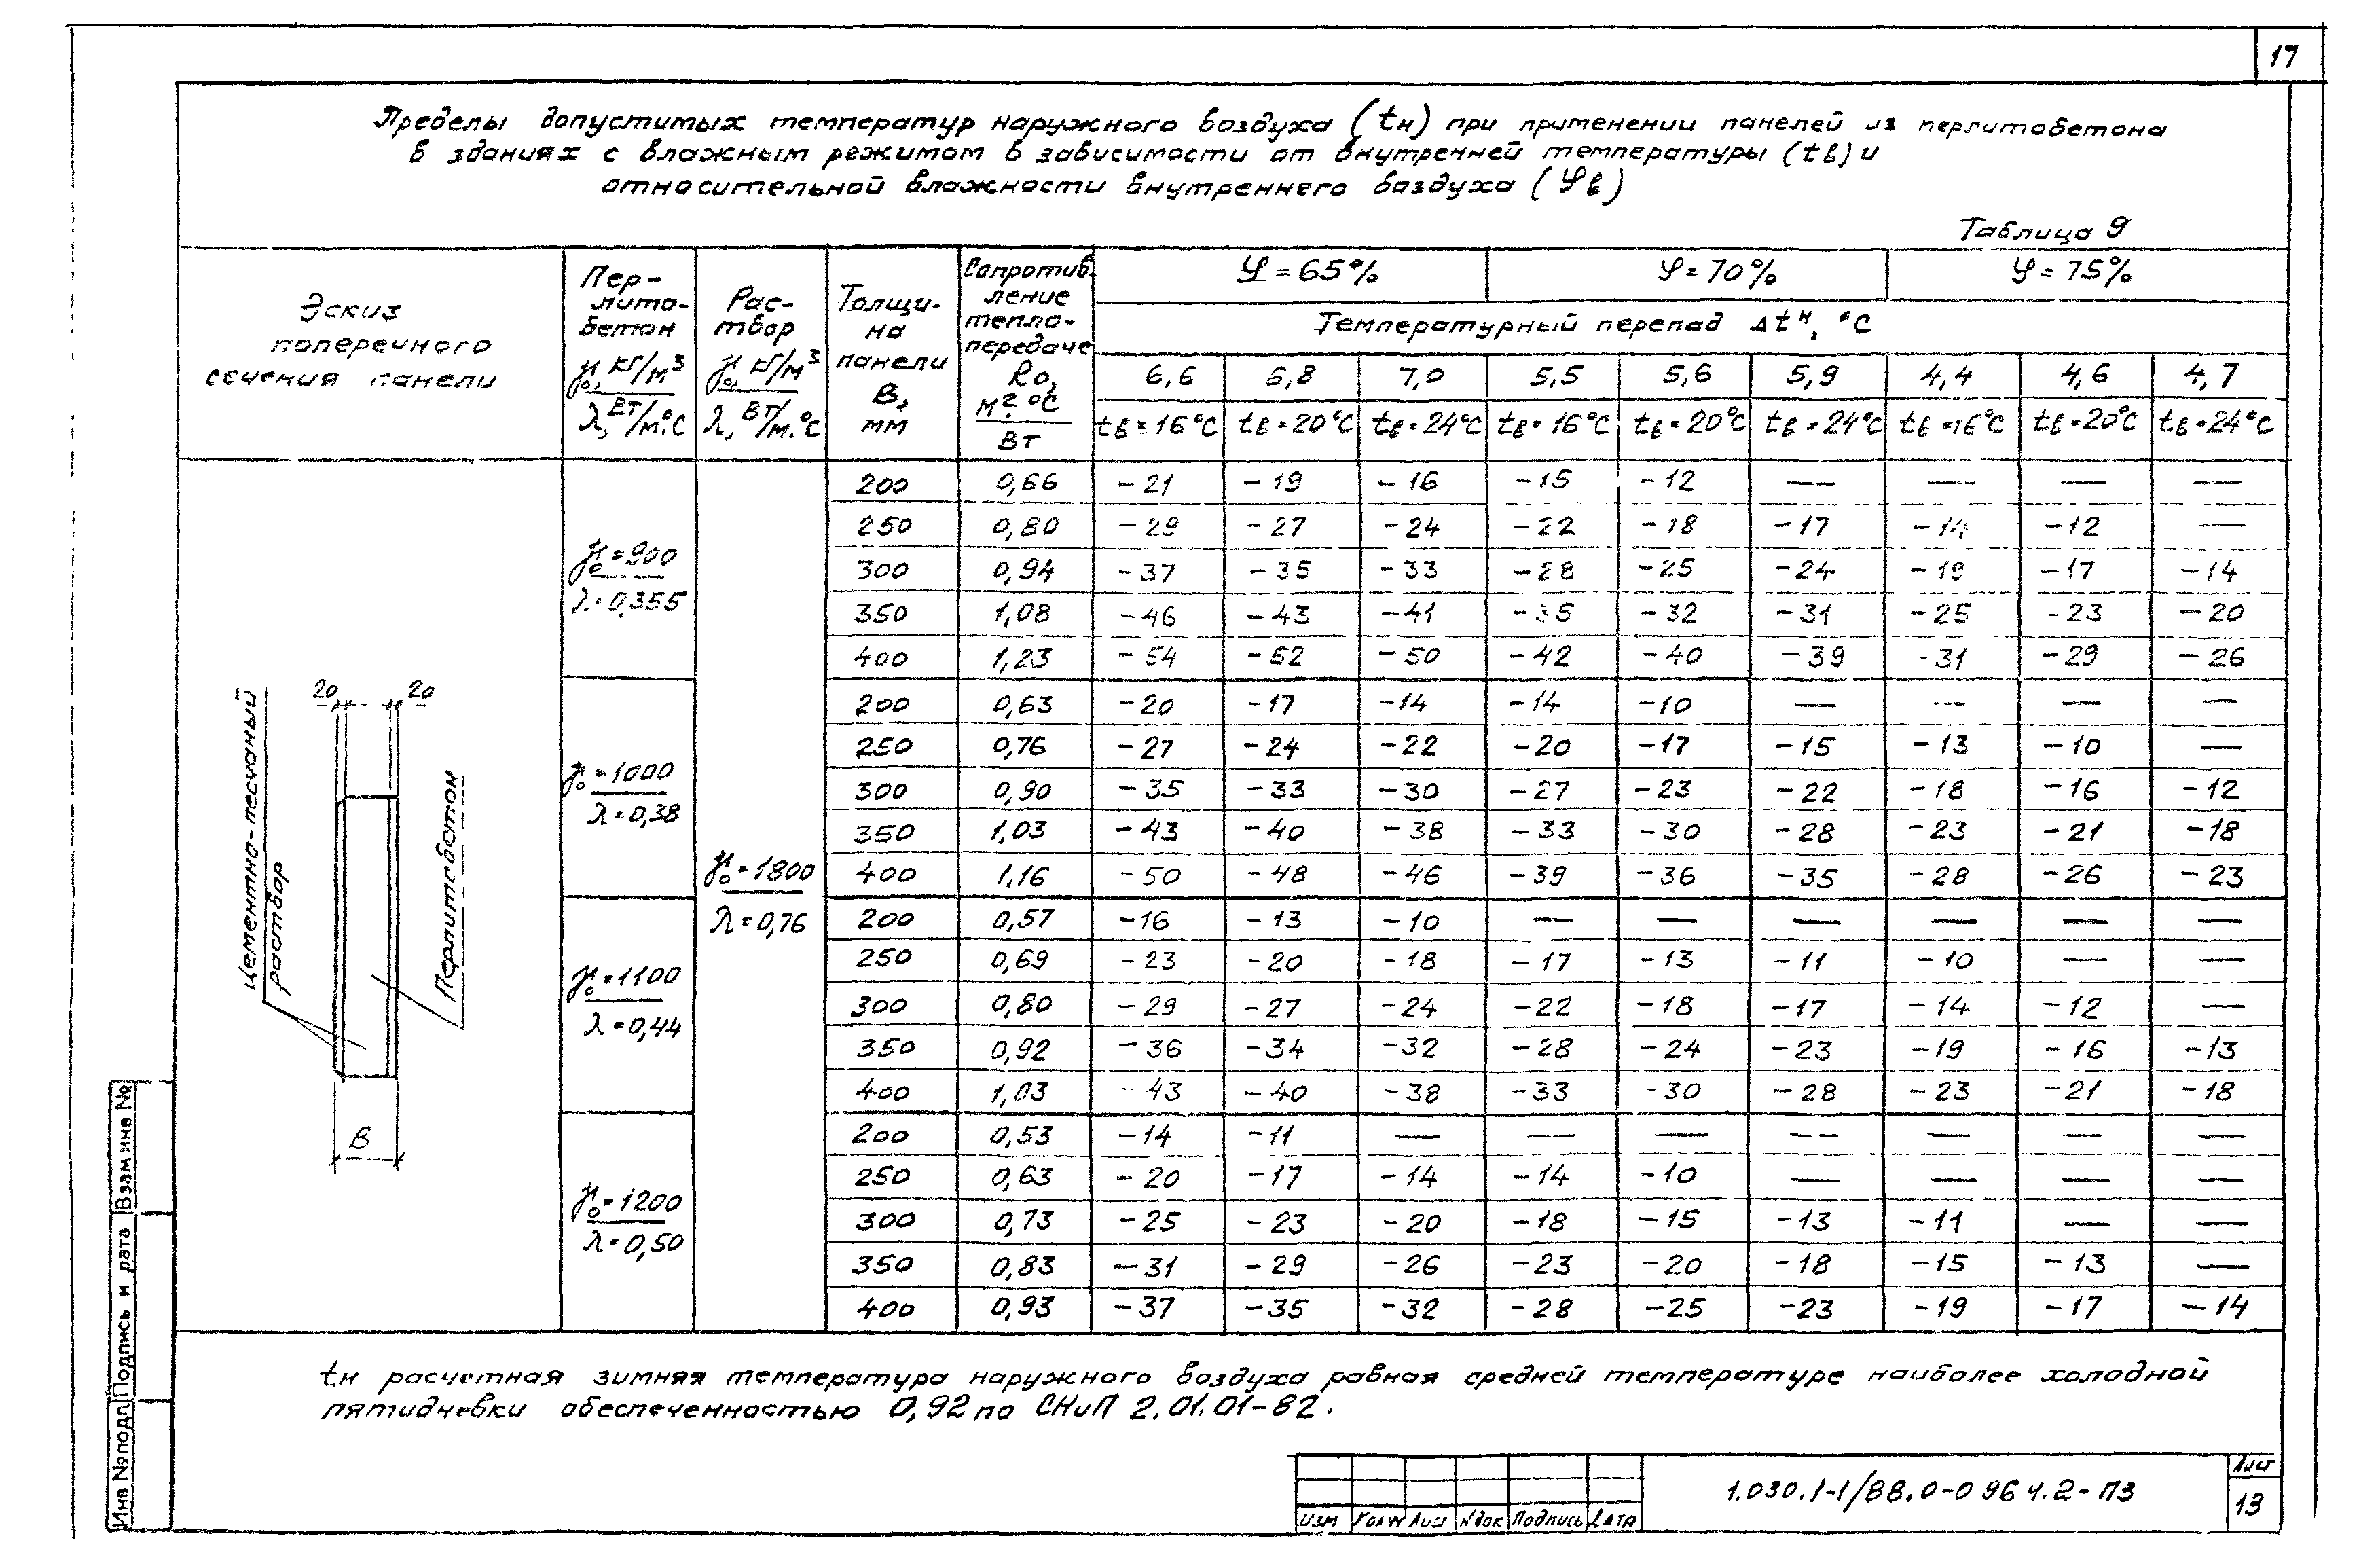 17
Пределы допустимых температур наружного воздуха (tн) при применении панелей из перлитобетона
в зданиях с влажным режимом в зависимости от внутренней температуры (tв) и
относительной влажности внутреннего воздуха (φв)
Таблица 9
Эскиз
поперечного
сечения панели
Пер-
лито-
бетон
γ₀, кг/м³
λ, Вт/м.°С
Рас-
твор
γ₀, кг/м³
λ, Вт/м.°С
Толщи-
на
панели
В,
мм
Сопротив-
ление
тепло-
передаче
Rо,
м².°С
Вт
φ = 65% φ = 70% φ = 75%
Температурный перепад Δtн, °С
6,6 6,8 7,0 5,5 5,6 5,9 4,4 4,6 4,7
tв = 16°С tв = 20°С tв = 24°С tв = 16°С tв = 20°С tв = 24°С tв = 16°С tв = 20°С tв = 24°С
γ₀ = 900
λ = 0,355
200 0,66 -21 -19 -16 -15 -12 — — — —
250 0,80 -29 -27 -24 -22 -18 -17 -14 -12 —
300 0,94 -37 -35 -33 -28 -25 -24 -19 -17 -14
350 1,08 -46 -43 -41 -35 -32 -31 -25 -23 -20
400 1,23 -54 -52 -50 -42 -40 -39 -31 -29 -26
γ₀ = 1000
λ = 0,38
200 0,63 -20 -17 -14 -14 -10 — — — —
250 0,76 -27 -24 -22 -20 -17 -15 -13 -10 —
300 0,90 -35 -33 -30 -27 -23 -22 -18 -16 -12
350 1,03 -43 -40 -38 -33 -30 -28 -23 -21 -18
400 1,16 -50 -48 -46 -39 -36 -35 -28 -26 -23
γ₀ = 1800
λ = 0,76
γ₀ = 1100
λ = 0,44
200 0,57 -16 -13 -10 — — — — — —
250 0,69 -23 -20 -18 -17 -13 -11 -10 — —
300 0,80 -29 -27 -24 -22 -18 -17 -14 -12 —
350 0,92 -36 -34 -32 -28 -24 -23 -19 -16 -13
400 1,03 -43 -40 -38 -33 -30 -28 -23 -21 -18
γ₀ = 1200
λ = 0,50
200 0,53 -14 -11 — — — — — — —
250 0,63 -20 -17 -14 -14 -10 — — — —
300 0,73 -25 -23 -20 -18 -15 -13 -11 — —
350 0,83 -31 -29 -26 -23 -20 -18 -15 -13 —
400 0,93 -37 -35 -32 -28 -25 -23 -19 -17 -14
20 20
Цементно-песчаный
раствор
Перлитобетон
В
tн расчетная зимняя температура наружного воздуха равная средней температуре наиболее холодной
пятидневки обеспеченностью 0,92 по СНиП 2.01.01-82.
Инв № подл Подпись и дата Взам инв №
Изм Колуч Лист №док Подпись Дата
1.030.1-1/88.0-0 96 ч.2-ПЗ
Лист
13